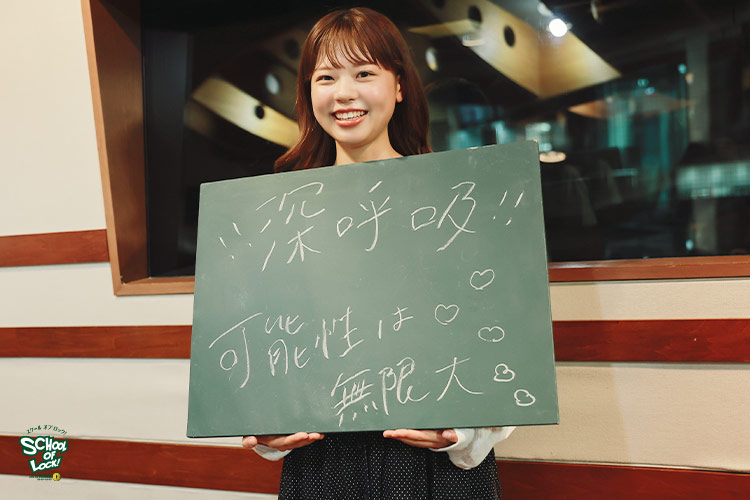 !!深呼吸!!
可能性は
無限大
スクールオブロック!
SCHOOL
OF
LOCK!